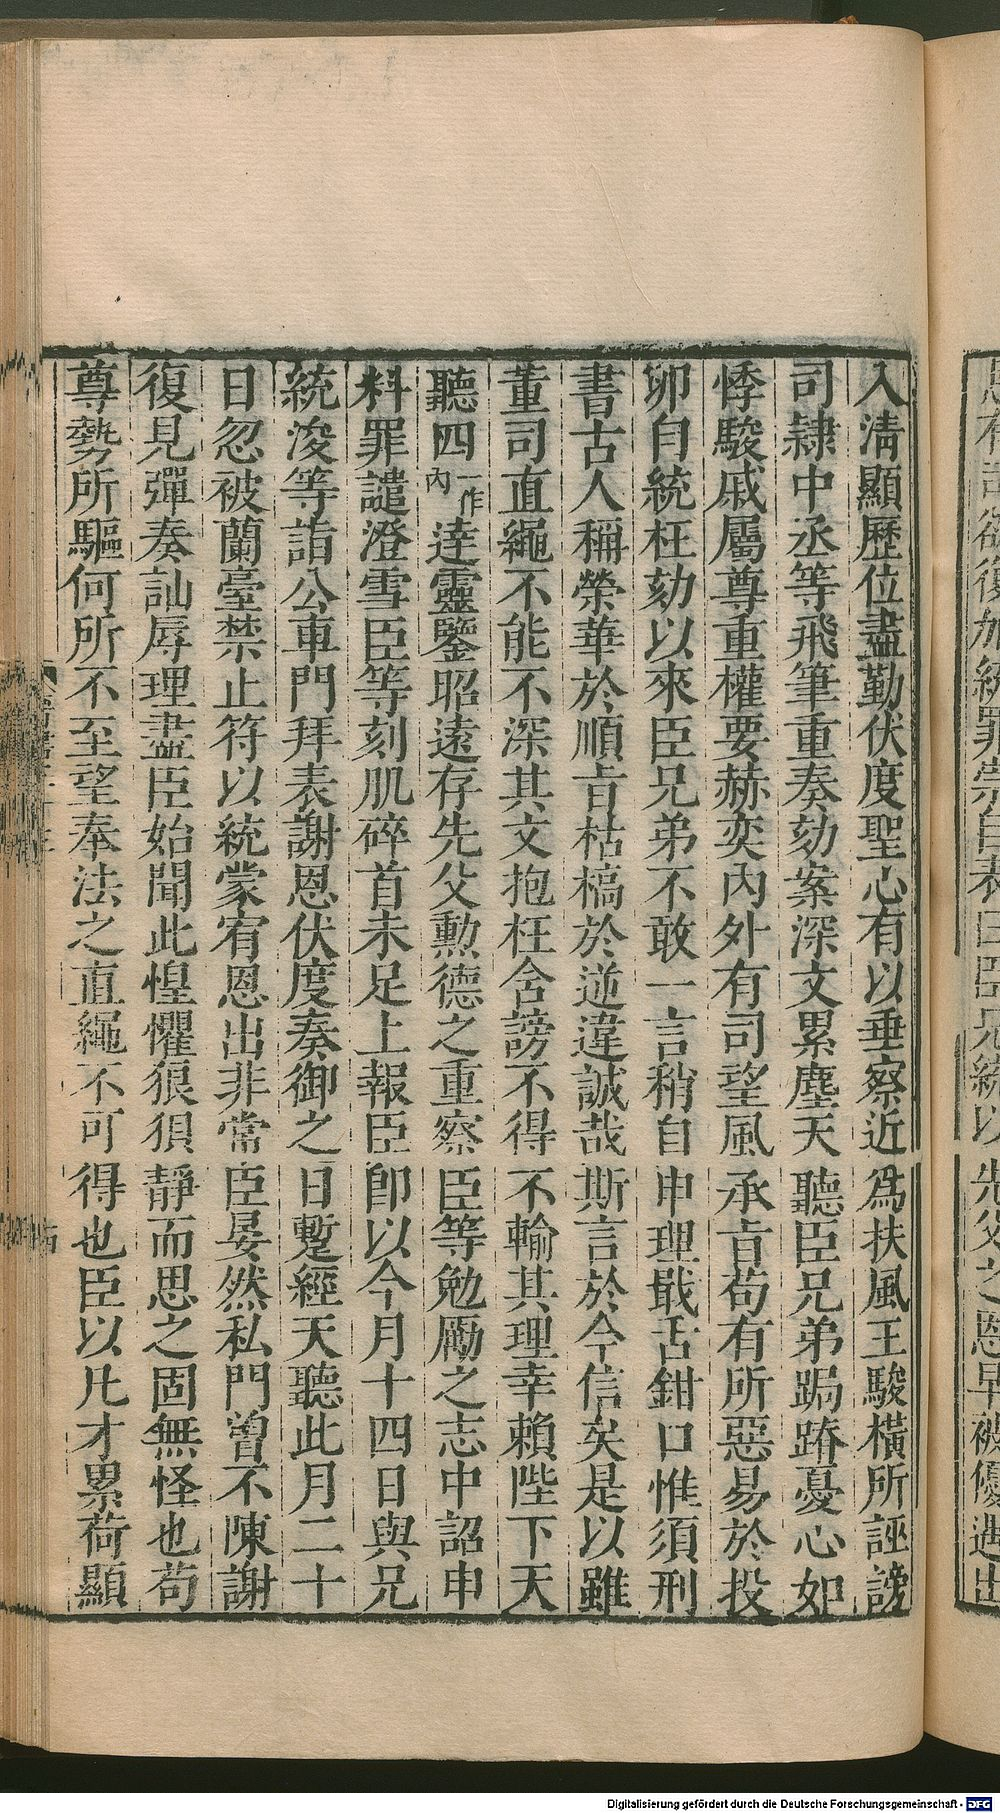 恩有司欲復加統罪崇自表曰臣兄統以先父之恩早被優遇出
入清顯歷位盡勤伏度聖心有以垂察近為扶風王駿橫所誣謗
司隸中丞等飛筆重奏劾案深文累塵天聽臣兄弟跼蹐憂心如
悸駿戚屬尊重權要赫奕內外有司望風承旨苟有所惡易於投
卵自統枉劾以來臣兄弟不敢一言稍自申理戢舌鉗口惟須刑
書古人稱榮華於順旨枯槁於逆違誠哉斯言於今信矣是以雖
董司直繩不能不深其文抱枉含謗不得不輸其理幸賴陛下天
聽四一作內達靈鑒昭遠存先父勲德之重察臣等勉勵之志中詔申
料罪譴澄雪臣等刻肌碎首未足上報臣卽以今月十四日與兄
統浚等詣公車門拜表謝恩伏度奏御之日蹔經天聽此月二十
日忽被蘭臺禁止符以統蒙宥恩出非常臣晏然私門曾不陳謝
復見彈奏訕辱理盡臣始聞此惶懼狼狽靜而思之固無怪也苟
尊勢所驅何所不至望奉法之直繩不可得也臣以凡才累荷顯
十四
Digitalisierung gefördert durch die Deutsche Forschungsgemeinschaft - DFG